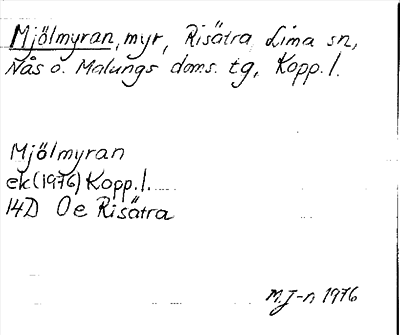 Mjölmyran, myr, Risätra, Lima sn,
Nås o. Malungs doms. tg, Kopp. l.
Mjölmyran
ek (1976) Kopp. l.
14D 0e Risätra
M. J-n 1976